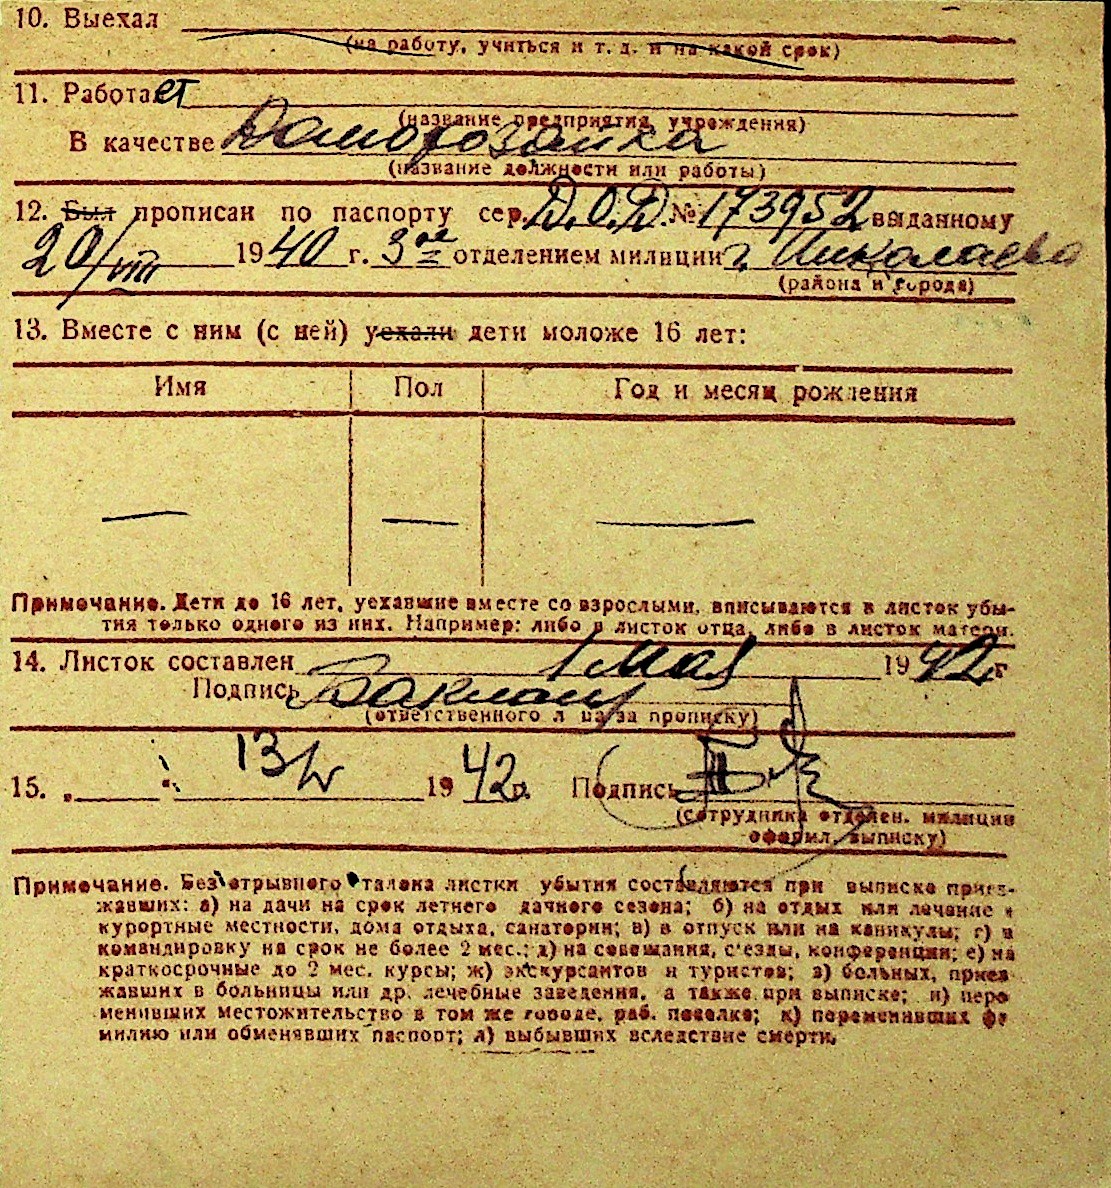 10. Выехал
(на работу, учиться и т. д. и на какой срок)
11. Работает
(название предприятия, учреждения)
В качестве Домохозяйка
(название должности или работы)
12. Был прописан по паспорту сер. Д.О.Д. № 173952 выданному
20/VIII 1940 г. 3 ое отделением милиции г. Николаева
(района и города)
13. Вместе с ним (с ней) уехали дети моложе 16 лет:
Имя Пол Год и месяц рождения
— — —
Примечание. Дети до 16 лет, уехавшие вместе со взрослыми, вписываются в листок убы-
тия только одного из них. Например: либо в листок отца, либо в листок матери.
14. Листок составлен 1 мая 1942 г
Подпись
(ответственного лица за прописку)
15. " " 13/V 1942 г. Подпись
(сотрудника отделен. милиции
оформл. выписку)
Примечание. Без отрывного талона листки убытия составляются при выписке приез-
жавших: а) на дачи на срок летнего дачного сезона; б) на отдых или лечение в
курортные местности, дома отдыха, санатории; в) в отпуск или на каникулы; г) в
командировку на срок не более 2 мес.; д) на совещания, с'езды, конференции; е) на
краткосрочные до 2 мес. курсы; ж) экскурсантов и туристов; з) больных, приез
жавших в больницы или др. лечебные заведения, а также при выписке; и) пере
менивших местожительство в том же городе, раб. поселке; к) переменивших фа
милию или обменявших паспорт; л) выбывших вследствие смерти.